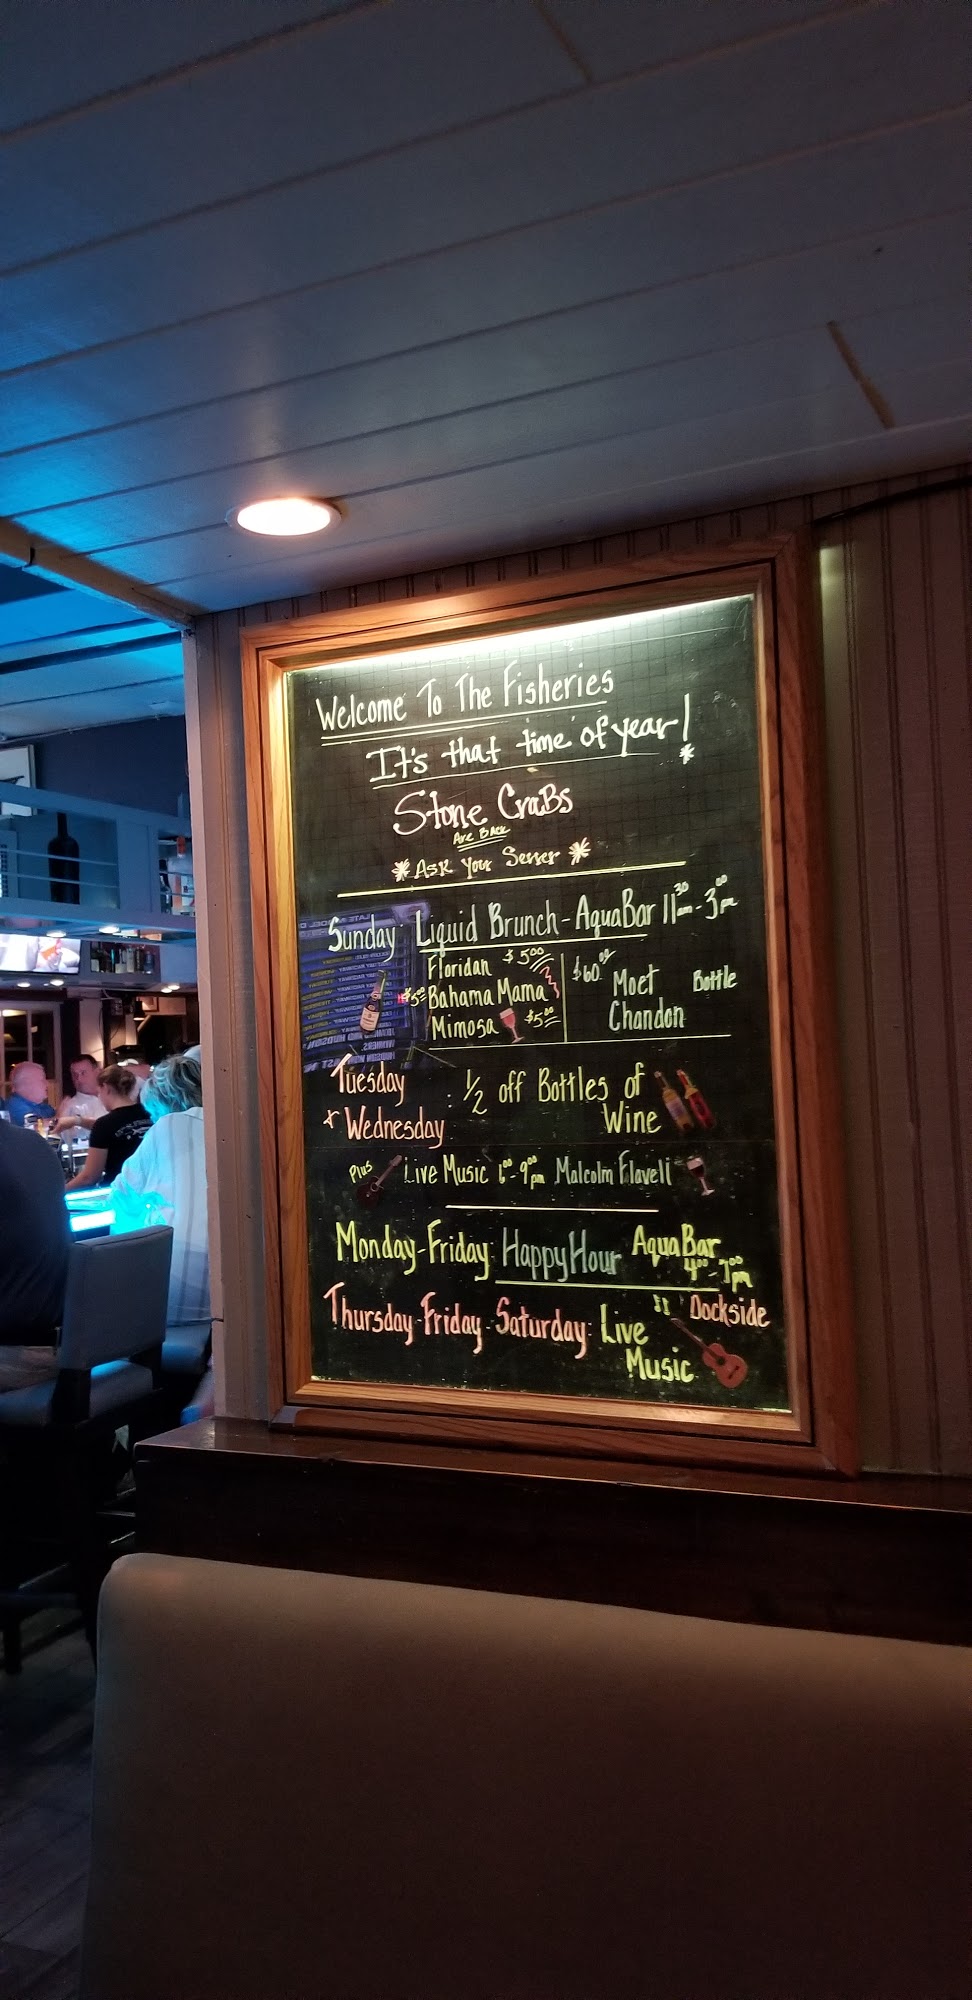 Welcome To The Fisheries
It's that time of year!
Stone Crabs
Are Back
Ask Your Server
Sunday Liquid Brunch - AquaBar 11:30am - 3:00pm
Floridan $5.00
$5.00 Bahama Mama
Mimosa $5.00
$60.00 Moet Bottle
Chandon
Tuesday
+ Wednesday : 1/2 off Bottles of
Wine
Plus Live Music 6:00-9:00pm Malcolm Flaveli
Monday-Friday: Happy Hour AquaBar
4:00-7:00pm
Thursday-Friday-Saturday: Live Dockside
Music